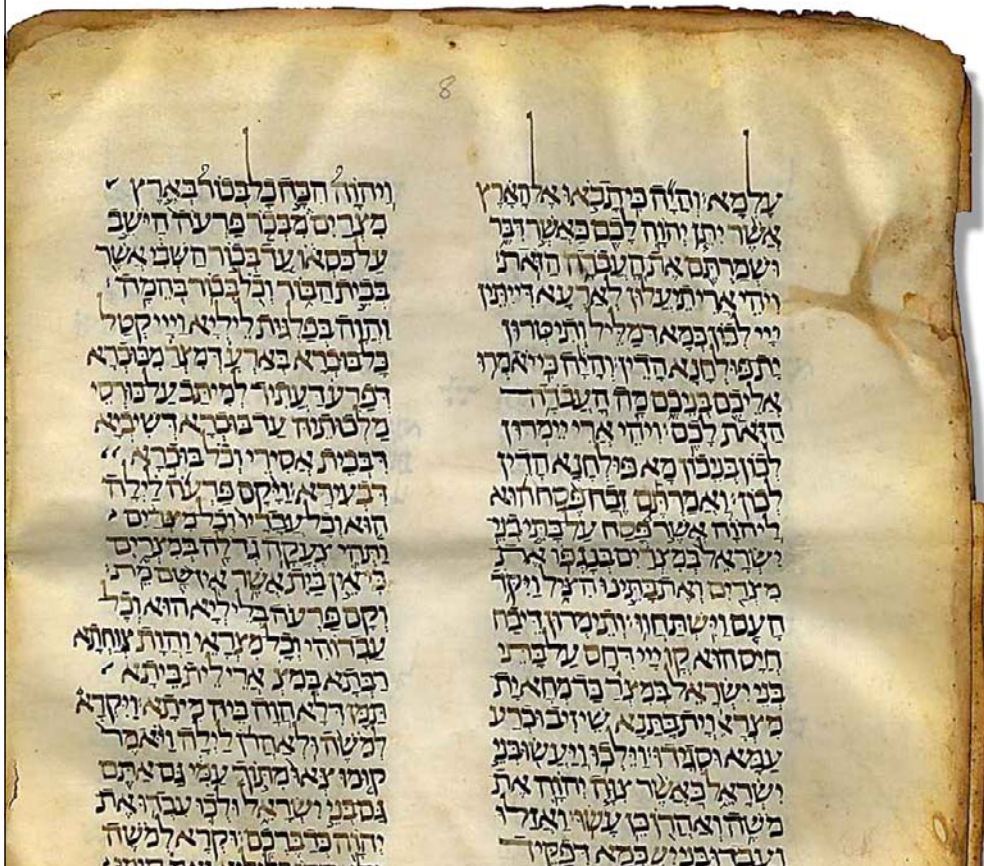 8
עלמא והיה כי תבאו אל הארץ
אשר יתן יהוה לכם כאשר דבר
ושמרתם את העבדה הזאת
ויהי ארי תיעלון לארעא דייתין
ייי לכון כמא דמליל ותיטרון
ית פולחנא הדין והיה כי יאמרו
אליכם בניכם מה העבדה
הזאת לכם ויהי ארי יימרון
לכון בניכון מא פולחנא הדין
לכון ואמרתם זבח פסח הוא
ליהוה אשר פסח על בתי בני
ישראל במצרים בנגפו את
מצרים ואת בתינו הציל ויקד
העם וישתחוו ותימרון דיבח
חיס הוא קד ייי דחס על בתי
בני ישראל במצר כד מחא ית
מצראי וית בתנא שיזיב וכרע
עמא וסגידו וילכו ויעשו בני
ישראל כאשר צוה יהוה את
משה ואהרן כן עשו ואזלו
ועבדו בני יש כמא דפקיד
ויהוה הכה כל בכור בארץ
מצרים מבכר פרעה הישב
על כסאו עד בכור השבי אשר
בבית הבור וכל בכור בהמה
והוה בפלגות ליליא וייי קטל
כל בוכרא בארע דמצר מבוכרא
דפרעה דעתיד למיתב על כורסי
מלכותיה עד בוכרא דשיביא
דבבית אסירי וכל בוכרא
דבעירא ויקם פרעה לילה
הוא וכל עבדיו וכל מצרים
ותהי צעקה גדלה במצרים
כי אין בית אשר אין שם מת
וקם פרעה בליליא הוא וכל
עבדוהי וכל מצראי והות צוחתא
רבתא במצ ארי לית ביתא
תמן דלא הוה ביה מיתא ויקרא
למשה ולאהרן לילה ויאמר
קומו צאו מתוך עמי גם אתם
גם בני ישראל ולכו עבדו את
יהוה כדברכם וקרא למשה